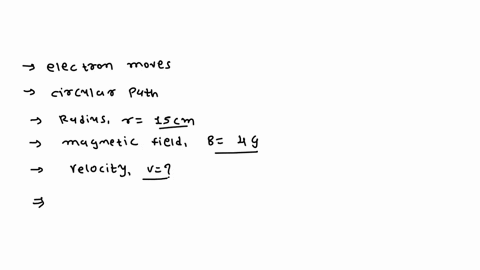 → electron moves
→ circular path
→ Radius, r= 15cm
→ magnetic field, B= 4g
→ velocity, v=?
⇒